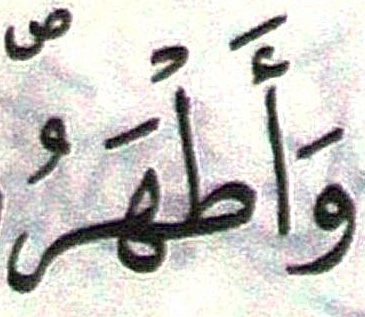 وَأَطْهَرُ ص